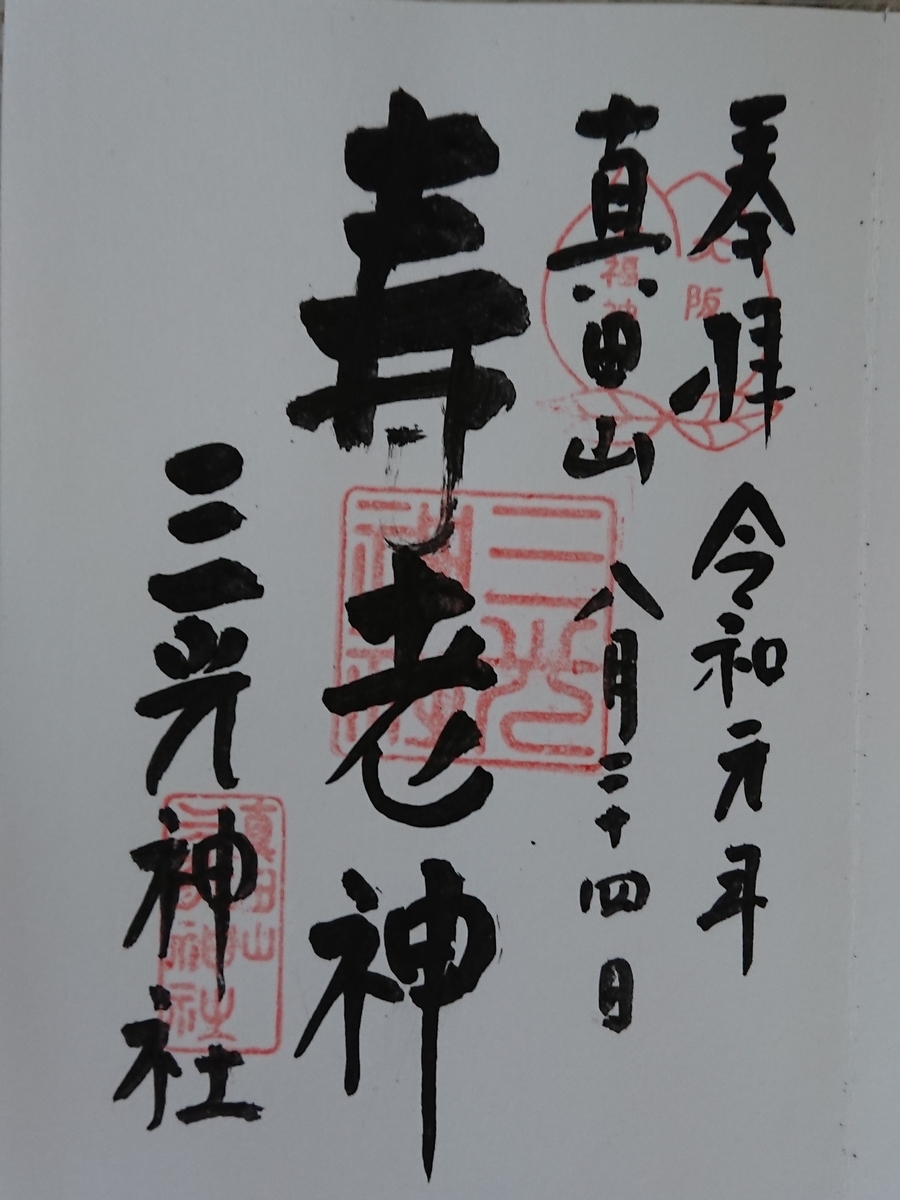 奉拝 令和元年
真田山 八月二十四日
寿老神
三光神社
大阪
福神
三光神社
真田山
三光神社